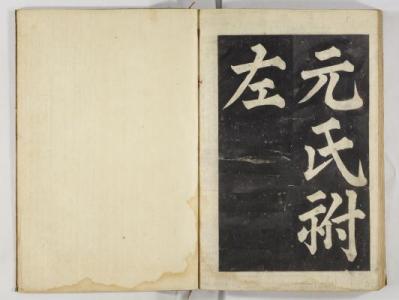 元氏祔
左